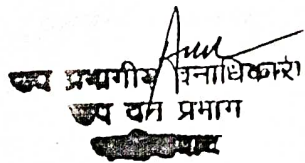 उप प्रभागीय वनाधिकारी
उप वन प्रभाग